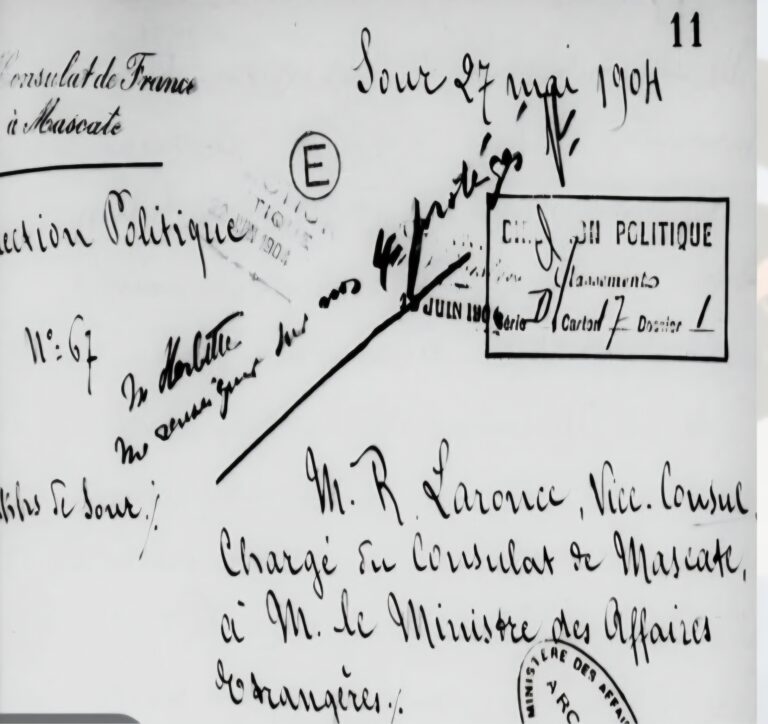 11
Consulat de France
à Mascate
Sour 27 mai 1904
E
Direction Politique
JUIN 1904
N°: 67
M. Herbette
me renseigner sur nos protégés
JUIN 190
POLITIQUE
Classements
Série D Carton 7 Dossier 1
de Sour ./.
M. R. Laronce, Vice-Consul,
Chargé du Consulat de Mascate,
à M. le Ministre des Affaires
Etrangères ./.
MINISTÈRE DES AFFAI
ARC